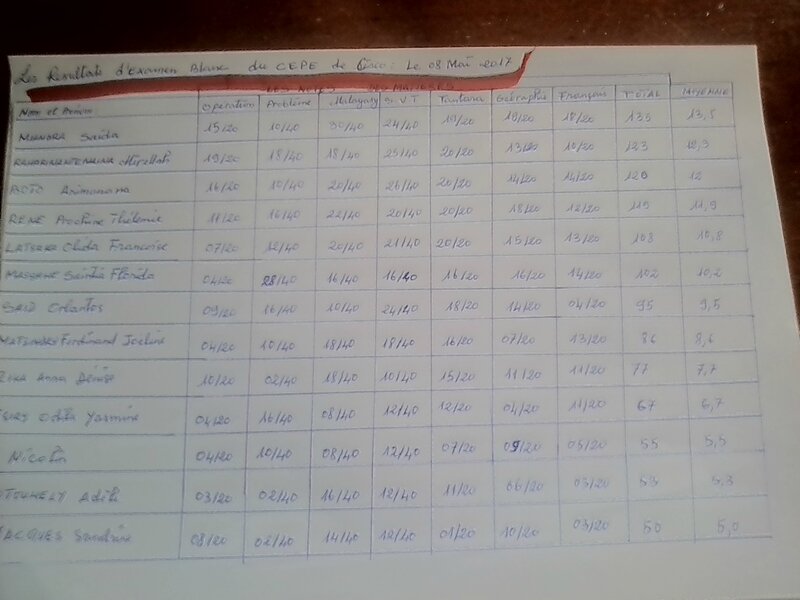 Les Resultats d'Examen Blanc du CEPE de Cisco : Le 08 Mai 2017
LES NOTES DES MATIERES
Nom et Prenom Operation Problème Malagasy S.V.T Tantara Géographie Français TOTAL MOYENNE
Saida 15/20 10/40 30/40 24/40 19/20 19/20 18/20 135 13,5
19/20 18/40 18/40 25/40 20/20 13/20 10/20 123 12,3
16/20 10/40 20/40 26/40 20/20 14/20 14/20 120 12
RENE Thélemie 11/20 16/40 22/40 20/40 20/20 18/20 12/20 119 11,9
Francoise 07/20 12/40 20/40 21/40 20/20 15/20 13/20 108 10,8
Florida 04/20 28/40 16/40 16/40 16/20 16/20 14/20 102 10,2
SAID Orlantos 09/20 16/40 10/40 24/40 18/20 14/20 04/20 95 9,5
Ferdinand Jocline 04/20 10/40 18/40 18/40 16/20 07/20 13/20 86 8,6
Anna Denise 10/20 02/40 18/40 10/40 15/20 11/20 11/20 77 7,7
Odita Yasmine 04/20 16/40 08/40 12/40 12/20 04/20 11/20 67 6,7
04/20 10/40 08/40 12/40 07/20 09/20 05/20 55 5,5
03/20 02/40 16/40 12/40 11/20 06/20 03/20 53 5,3
JACQUES Sandrine 08/20 02/40 14/40 12/40 01/20 10/20 03/20 50 5,0